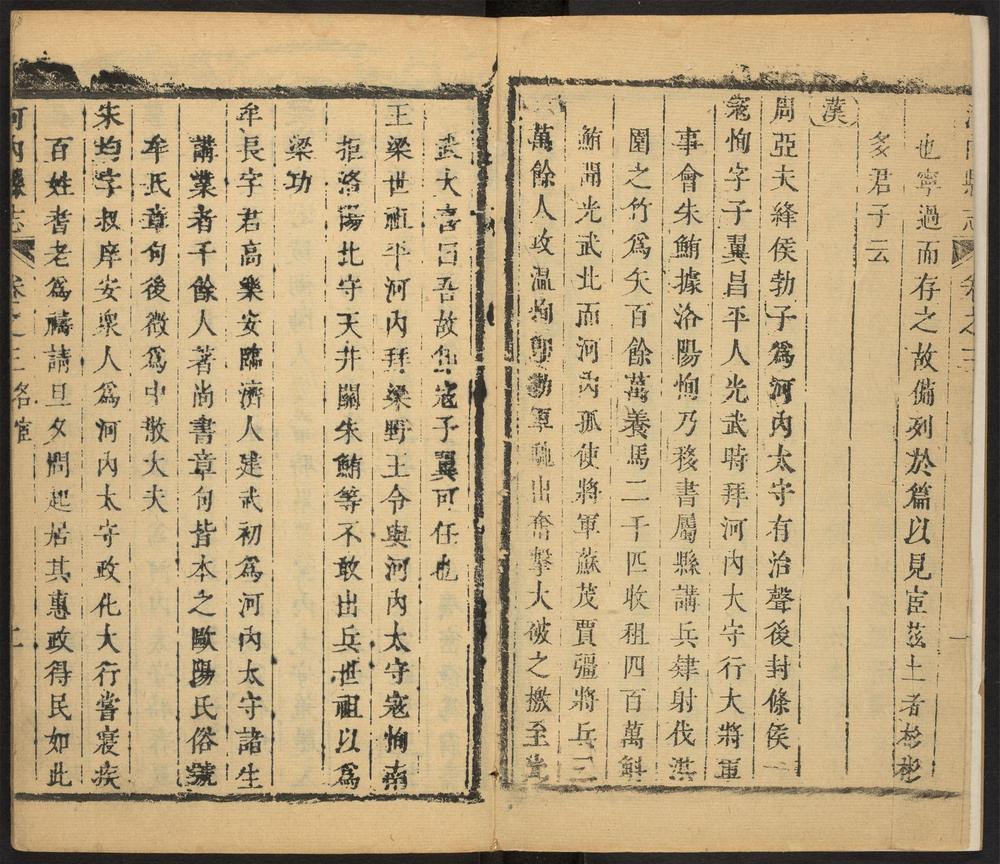 河內縣志 卷之三
也寧過而存之故備列於篇以見宦茲土者彬彬
多君子云
漢
周亞夫絳侯勃子爲河內太守有治聲後封條侯
寇恂字子翼昌平人光武時拜河內太守行大將軍
事會朱鮪據洛陽恂乃移書屬縣講兵肄射伐淇
園之竹爲矢百餘萬養馬二千匹收租四百萬斛
鮪聞光武北而河內孤使將軍蘇茂賈彊將兵三
萬餘人攻溫恂卽勒軍馳出奮擊大破之檄至
武大喜曰吾故知寇子翼可任也
王梁世祖平河內拜梁野王令與河內太守寇恂南
拒洛陽北守天井關朱鮪等不敢出兵世祖以爲
梁功
牟長字君高樂安臨濟人建武初爲河內太守諸生
講業者千餘人著尚書章句皆本之歐陽氏俗號
牟氏章句後徵爲中散大夫
朱均字叔庠安衆人爲河內太守政化大行嘗寢疾
百姓耆老爲禱請旦夕問起居其惠政得民如此
河內縣志 卷之三 名宦